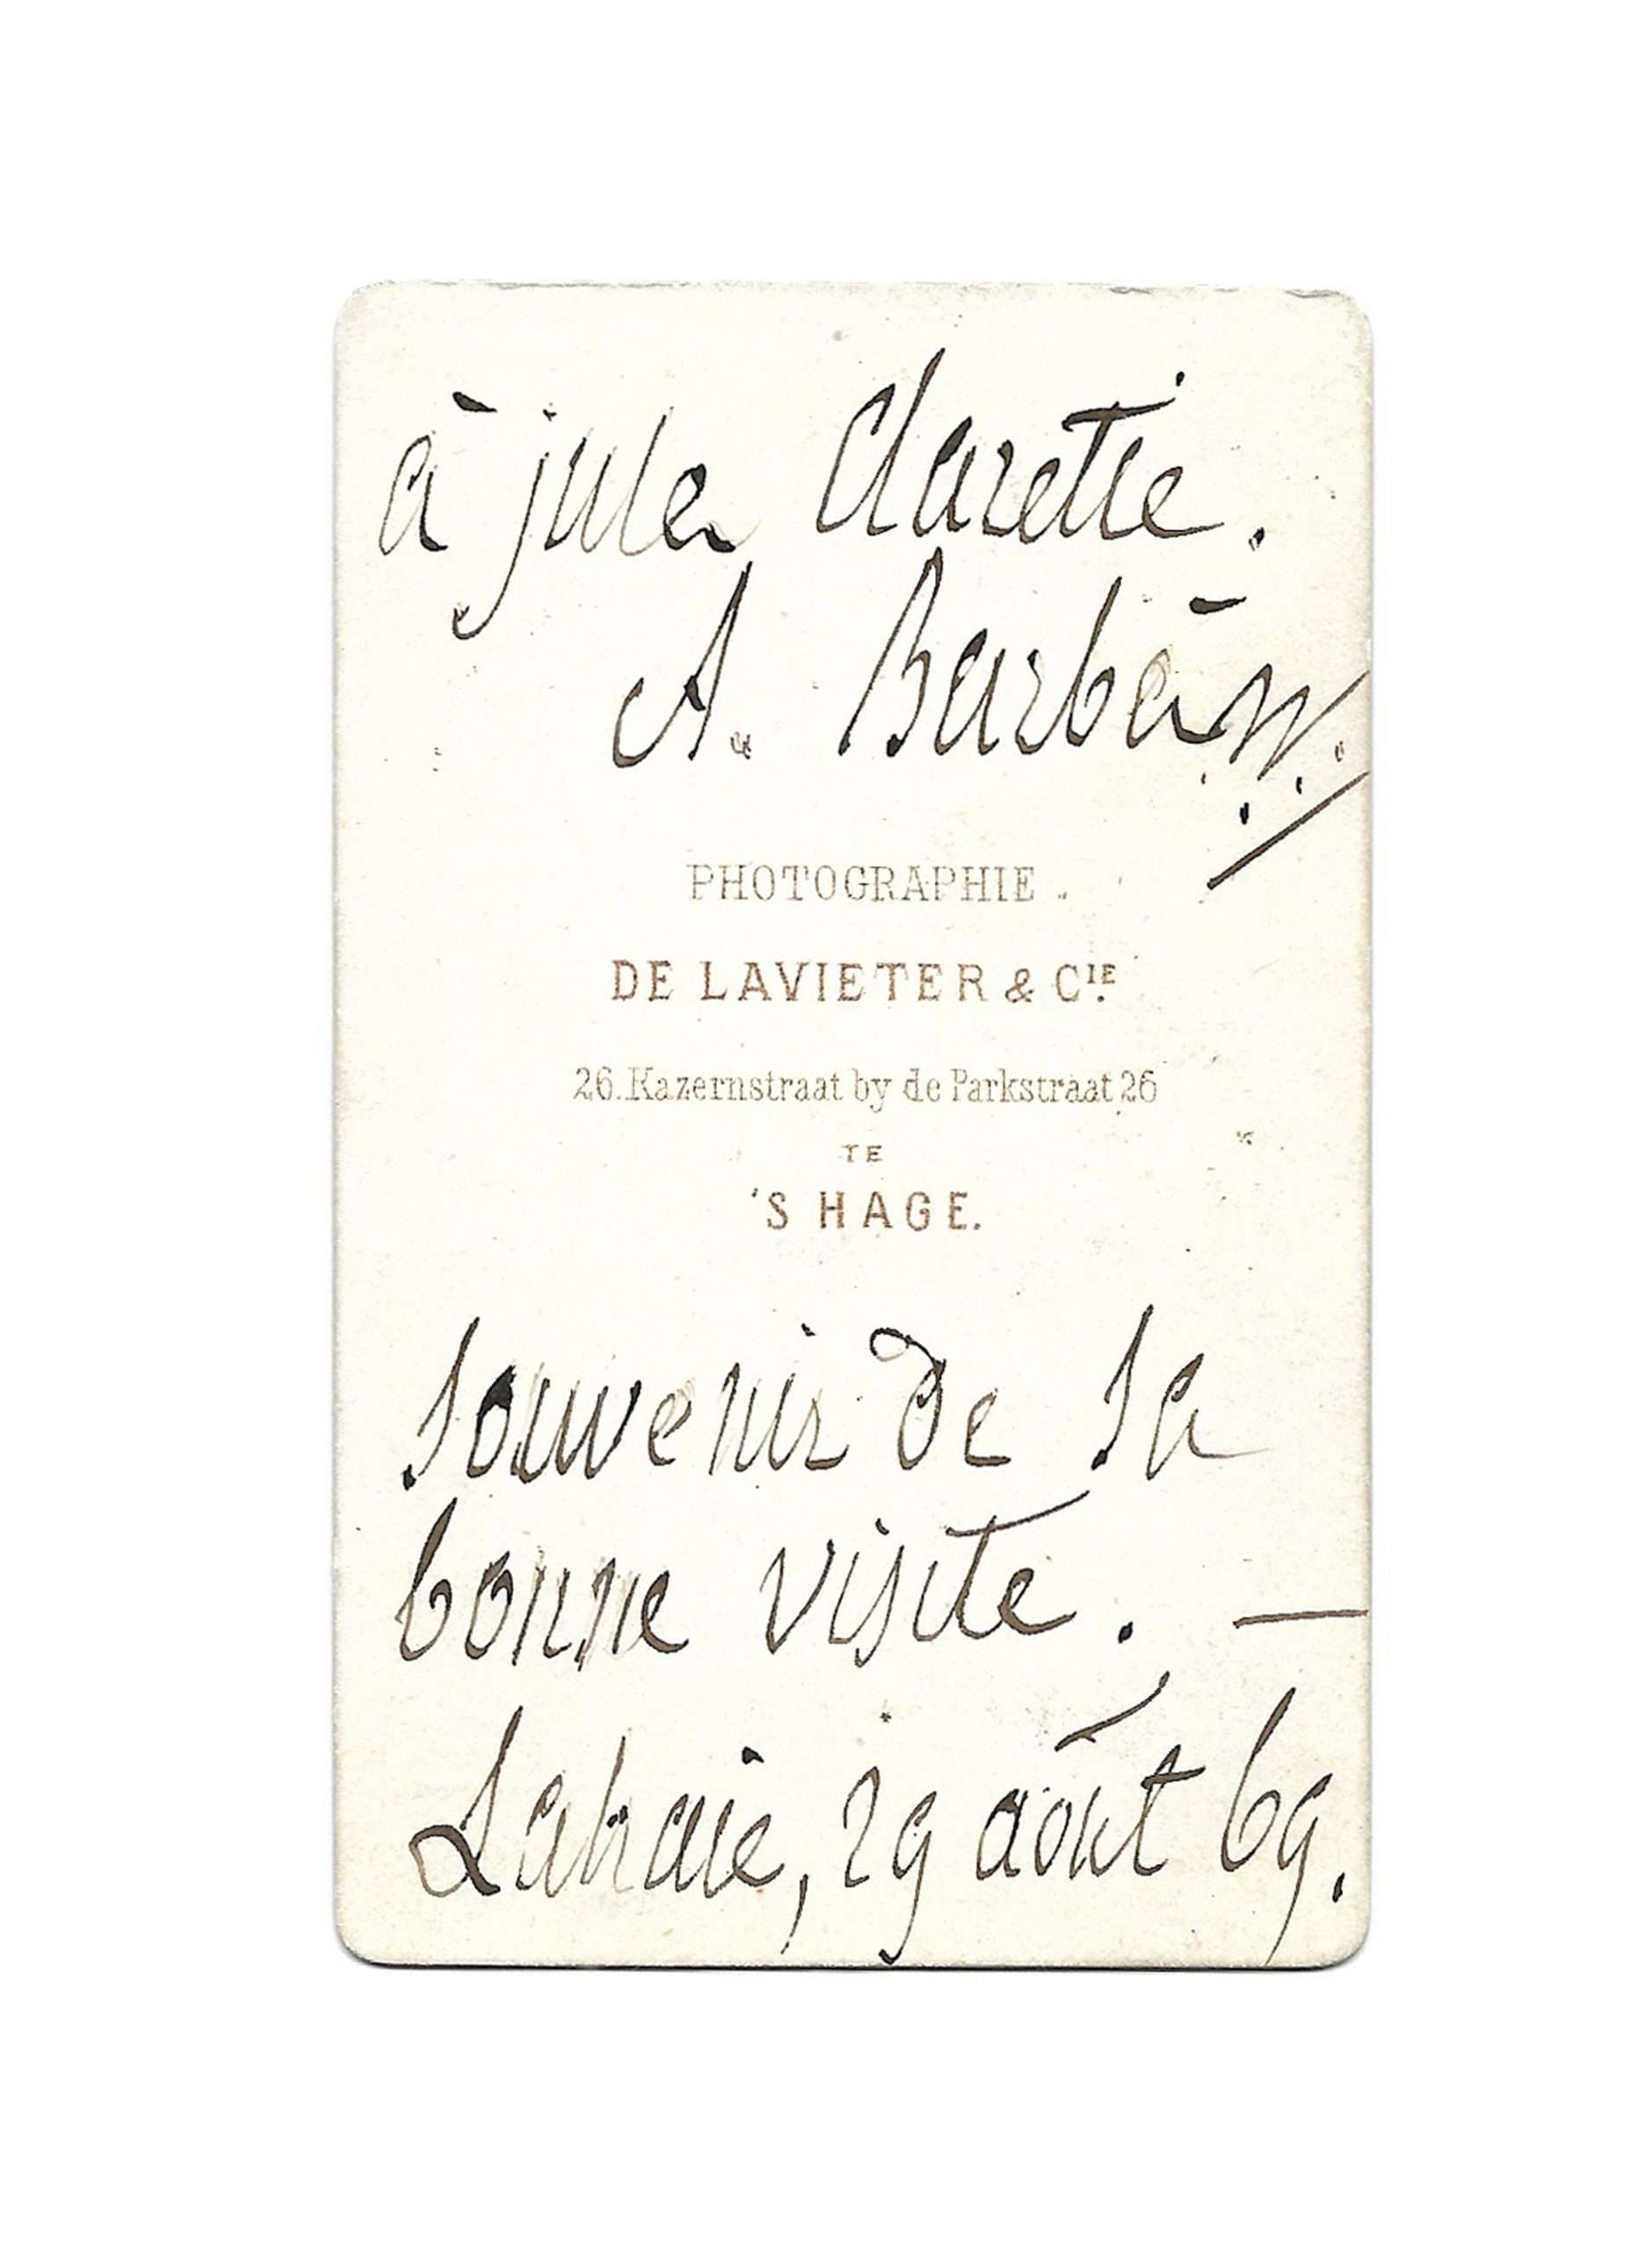 à jules Claretie.
A. Barbès
PHOTOGRAPHIE.
DE LAVIETER & CIE.
26. Kazernstraat by de Parkstraat 26
TE
'S HAGE.
souvenir de sa
bonne visite. —
Lahaie, 29 août 69.